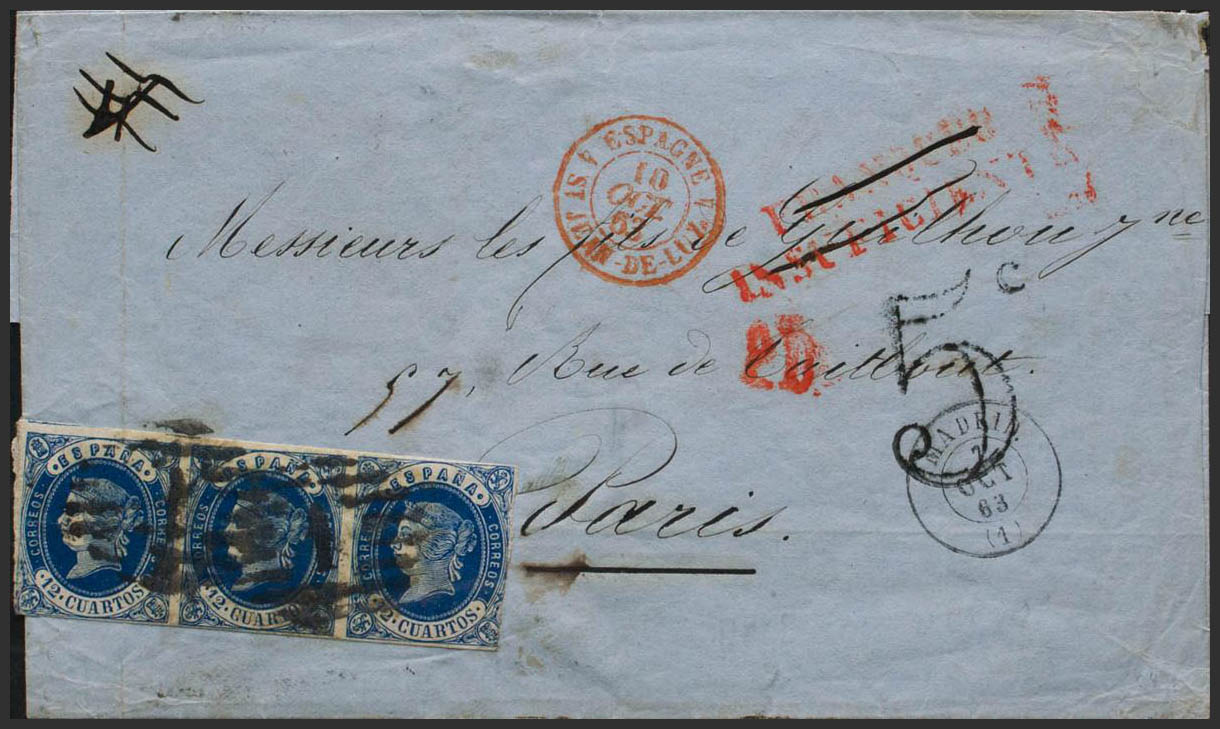 ESPAGNE
ST JEAN-DE-LUZ
10
OCT
FRANQUEO
INSUFICIENTE
PD
Messieurs les fils de Guilhou Jne
57, Rue de Taitbout.
Paris.
5 c
MADRID
OCT
63
(1)
ESPAÑA
CORREOS
CORREOS
12·CUARTOS
ESPAÑA
CORREOS
12·CUARTOS
ESPAÑA
CORREOS
CORREOS
12·CUARTOS